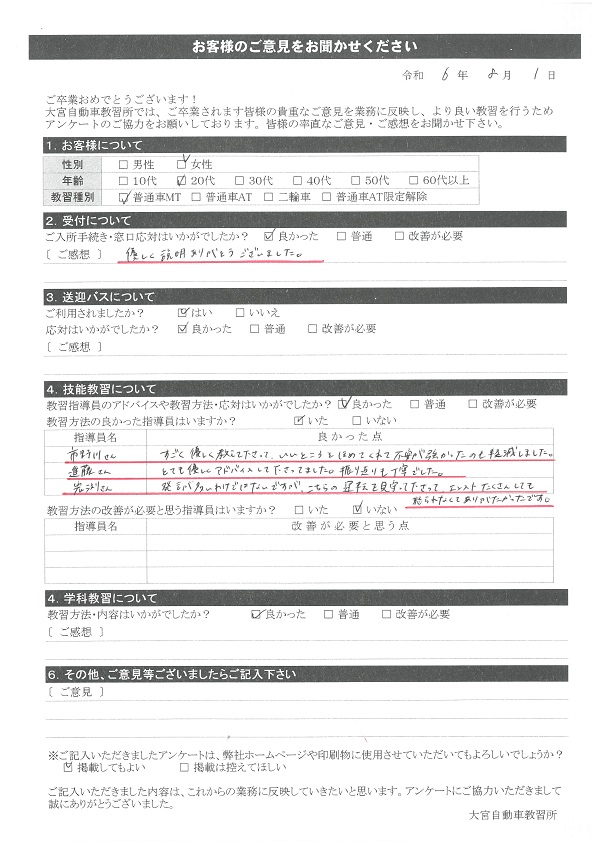 お客様のご意見をお聞かせください
令和 6 年 8 月 1 日
ご卒業おめでとうございます！
大宮自動車教習所では、ご卒業されます皆様の貴重なご意見を業務に反映し、より良い教習を行うため
アンケートのご協力をお願いしております。皆様の率直なご意見・ご感想をお聞かせ下さい。
1. お客様について
性別 □ 男性 ☑ 女性
年齢 □ 10代 ☑ 20代 □ 30代 □ 40代 □ 50代 □ 60代以上
教習種別 ☑ 普通車MT □ 普通車AT □ 二輪車 □ 普通車AT限定解除
2. 受付について
ご入所手続き・窓口応対はいかがでしたか？ ☑ 良かった □ 普通 □ 改善が必要
［ ご感想 ］ 優しく説明ありがとうございました。
3. 送迎バスについて
ご利用されましたか？ ☑ はい □ いいえ
応対はいかがでしたか？ ☑ 良かった □ 普通 □ 改善が必要
［ ご感想 ］
4. 技能教習について
教習指導員のアドバイスや教習方法・応対はいかがでしたか？ ☑ 良かった □ 普通 □ 改善が必要
教習方法の良かった指導員はいますか？ ☑ いた □ いない
指導員名 良かった点
市野川さん すごく優しく教えて下さって、いいところとほめてくれて不安が強かったのも軽減しました。
進藤さん とても優しくアドバイスして下さってました。振り返りも丁寧でした。
さん 発言が多いわけではないですが、こちらの運転を見守って下さって、エンストたくさんしても
怒られなくてありがたかったです。
教習方法の改善が必要と思う指導員はいますか？ □ いた ☑ いない
指導員名 改善が必要と思う点
4. 学科教習について
教習方法・内容はいかがでしたか？ ☑ 良かった □ 普通 □ 改善が必要
［ ご感想 ］
6. その他、ご意見等ございましたらご記入下さい
［ ご意見 ］
※ご記入いただきましたアンケートは、弊社ホームページや印刷物に使用させていただいてもよろしいでしょうか？
☑ 掲載してもよい □ 掲載は控えてほしい
ご記入いただきました内容は、これからの業務に反映していきたいと思います。アンケートにご協力いただきまして
誠にありがとうございました。
大宮自動車教習所